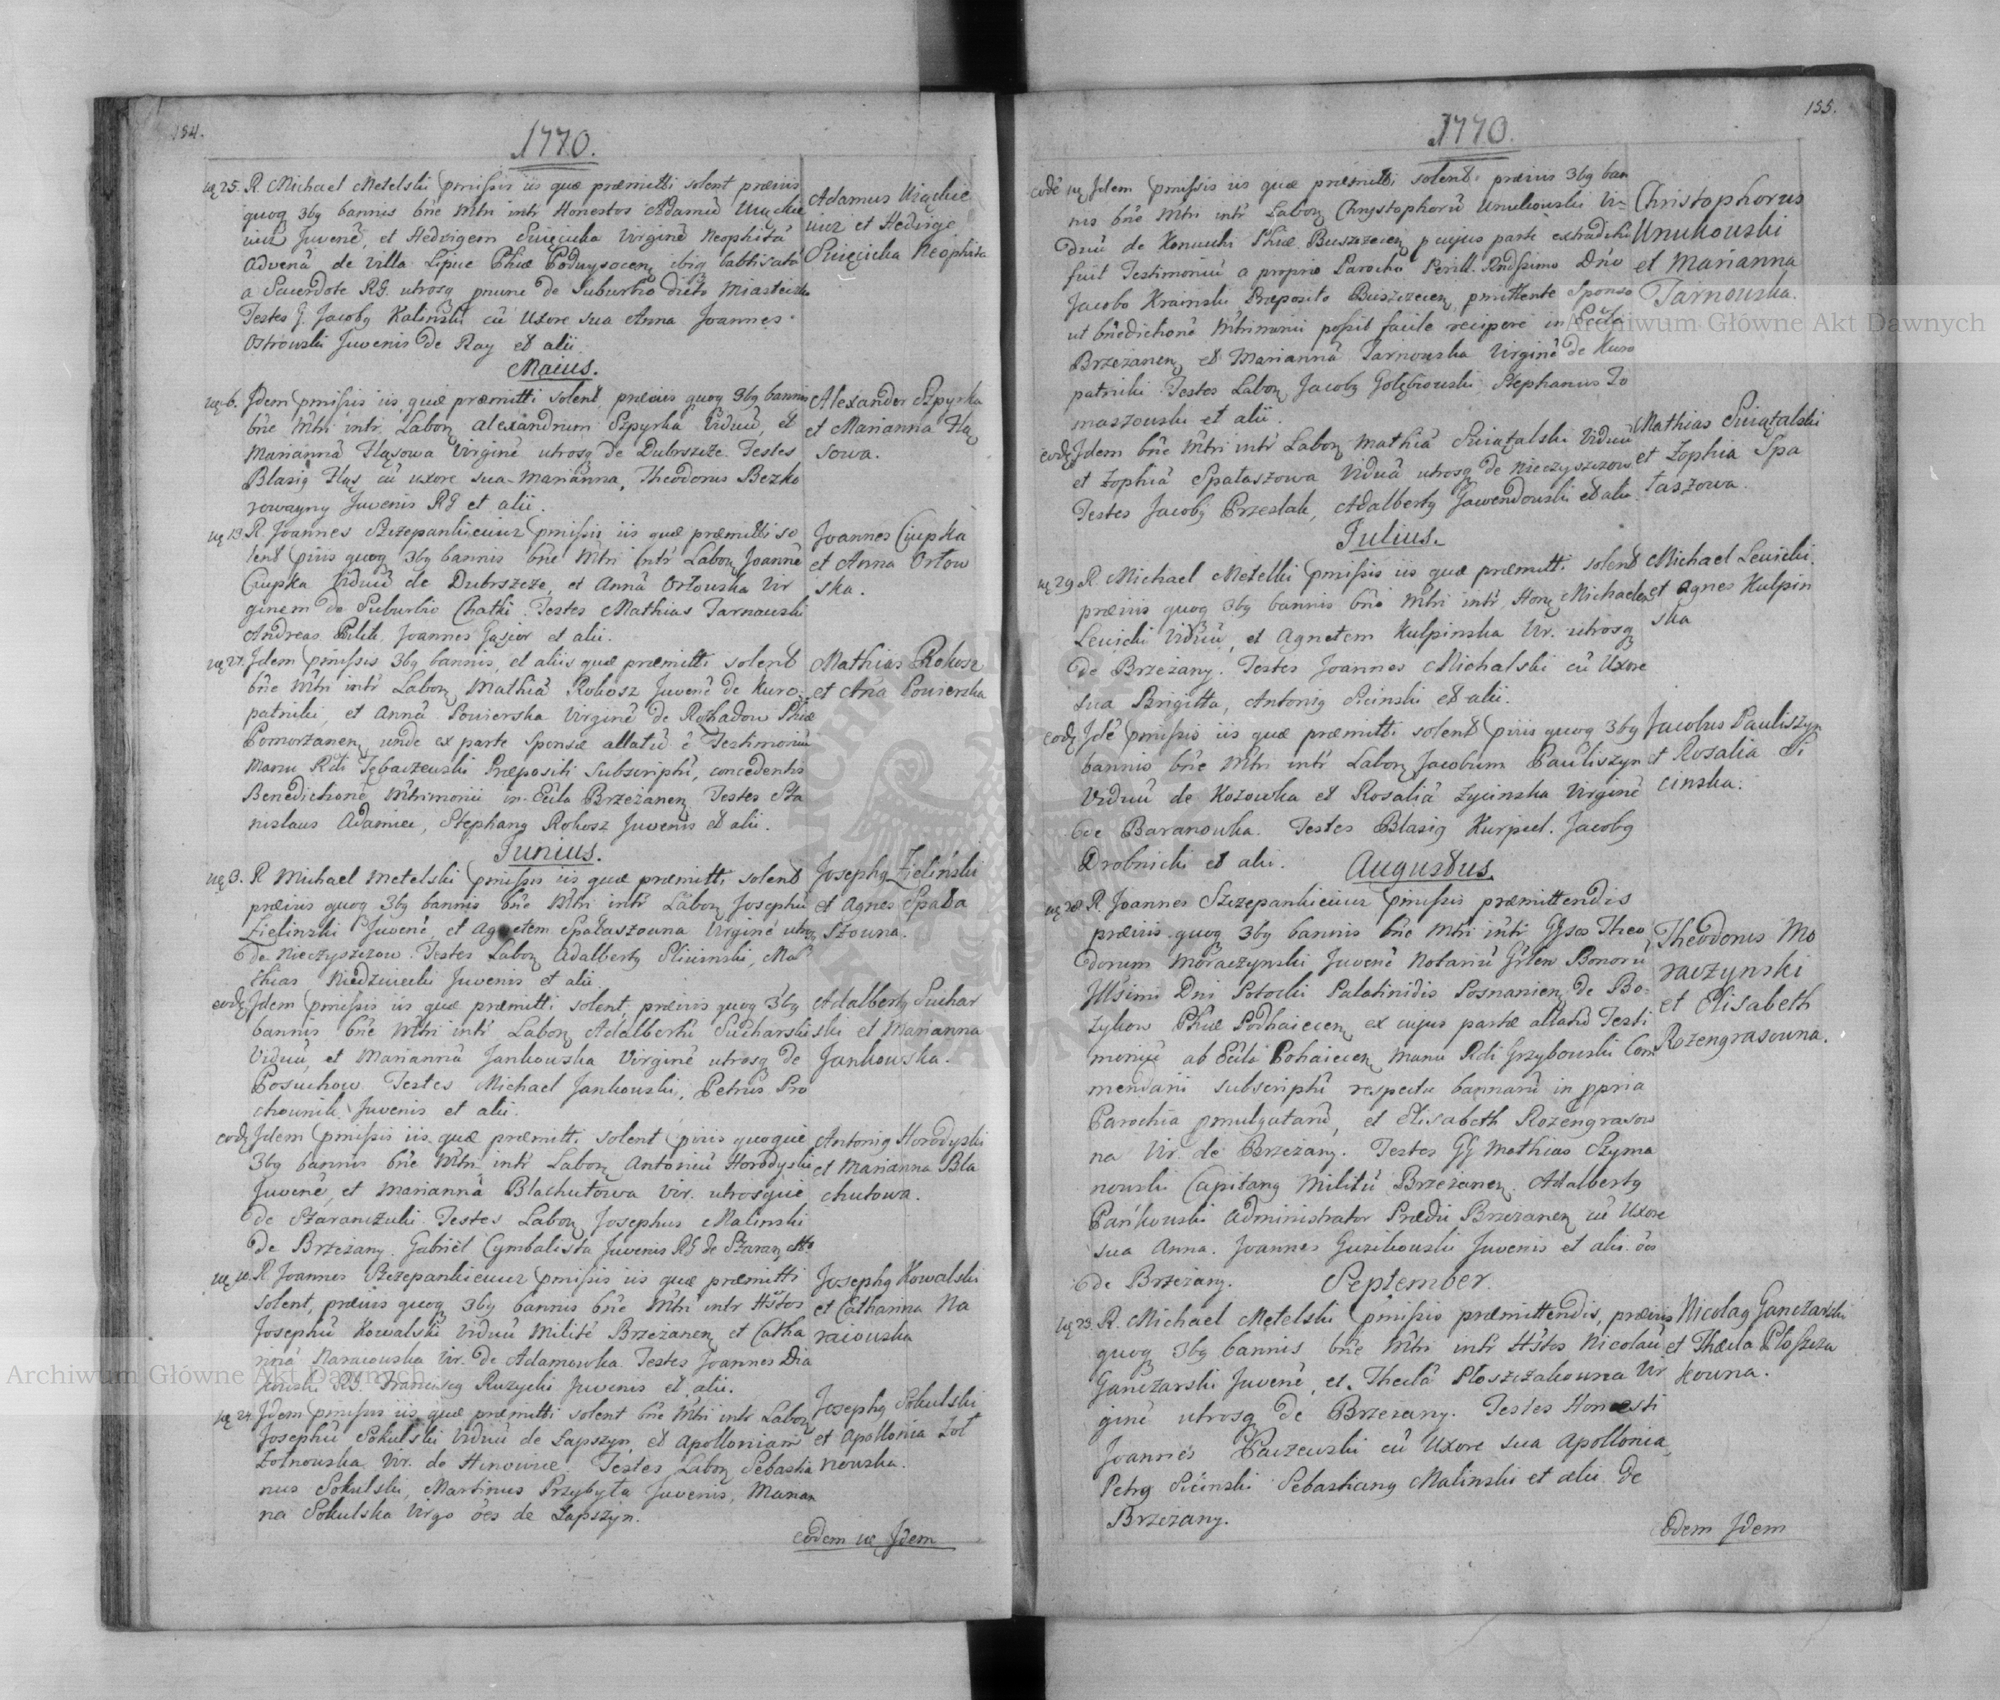 154.
1770.
uę 25. R. Michael Metelski pmissis iis quæ præmitti solent præviis
quoq 3bq bannis bñe Mtri intr Honestos Adamũ Uiąckie
wicz Juvenẽ, et Hedvigem Święcicka Virginẽ Neophitã
Advenã de Villa Lipue Phiæ Podwysocen ibiq babtisatã
a Sacerdote RG. utrosq pnunc de Suburbio dicto Miasteczko
Testes G. Jacobq Kaliński cũ Uxore sua Anna Joannes
Ostrowski Juvenis de Ray et alii.
Adamus Uiąckie
wicz et Hedvige
Święcicka Neophita
Maius.
uę 6. Jdem pmissis iis quæ præmitti solent, præviis quoq 3bq bannis
bñe Mtri intr Labor Alexandrum Szpyrka Viduũ, et
Mariannã Hląsowa Virginẽ utrosq de Dubrszcze. Testes
Blasiq Hląs cũ uxore sua Marianna, Theodorus Bezko
rowayny Juvenis RG et alii.
Alexander Szpyrka
et Marianna Hlą
sowa.
uę 13 R. Joannes Szczepankiewicz pmissis iis quæ præmitti so
lent piis quoq 3bq bannis bñe Mtri intr Labor Joannẽ
Ciupka Viduũ de Dubrszcze, et Annã Orłowska Vir
ginem de Suburbio Chatki. Testes Mathias Tarnawski
Andreas Joannes Gąsior et alii.
Joannes Ciupka
et Anna Orłow
ska.
uę 27. Jdem pmissis 3bq bannis, et aliis quæ præmitti solent
bñe Mtri intr Labor Mathiã Rokosz Juvenẽ de Kuro
patniki, et Annã Sowierska Virginẽ de Rohadow Phiæ
Pomorzanen, unde ex parte Sponsæ allatũ ẽ Testimoniũ
Manu Rdi Tębaczewski Præpositi Subscriptũ, concedentis
Benedictionẽ Mtrimonii in Ecła Brzezanen Testes Sta
nislaus Adamiec, Stephanq Rokosz Juvenis et alii.
Mathias Rokosz
et Ana Sowierska
Junius.
uę 3. R Michael Metelski pmissis iis quæ præmitti solent
præviis quoq 3bq bannis bñe Mtri intr Labor Josephũ
Zielinski Juvenẽ, et Agnetem Spałaszowna Virginẽ utrosq
de Nieczyszczow. Testes Labor Adalbertq Sliwinski, Ma
thias Niedzwiecki Juvenis et alii.
Josephq Zieliński
et Agnes Spała
szowna.
eodę Jdem pmissis iis quæ præmitti solent, præviis quoq 3bq
bannis bñe Mtri intr Labor Adalbertũ Sucharski
Viduũ, et Mariannã Jankowska Virginẽ utrosq de
Posuchow. Testes Michael Jankowski, Petrus Pro
chownik Juvenis et alii.
Adalbertq Suchar
ski et Marianna
Jankowska.
eodę Jdem pmissis iis quæ præmitti solent piis quoque
3bq bannis bñe Mtri intr Labor Antoniũ Horodyski
Juvenẽ, et Mariannã Blachutowa Vir. utrosque
de Szaranczuki. Testes Labor Josephus Malinski
de Brzeżany. Gabriel Cymbalista Juvenis RG de Szaran etc
Antoniq Horodyski
et Marianna Bla
chutowa.
uę 10. R. Joannes Szczepankiewicz pmissis iis quæ præmitti
solent, præviis quoq 3bq bannis bñe Mtri intr Hstos
Josephũ Kowalski Viduũ Militẽ Brzeżanen et Catha
rinã Naraiowska Vir. de Adamowka. Testes Joannes Dia
kowski RG. Franciscq Ruzycki Juvenis et alii.
Josephq Kowalski
et Catharina Na
raiowska
uę 24. Jdem pmissis iis quæ præmitti solent bñe Mtri intr Labor
Josephũ Sokulski Viduũ de Łapszyn, et Apolloniam
Żołnowska Vir. de Hinowice. Testes Labor Sebastia
nus Sokulski, Martinus Przybyła Juvenis, Marian
na Sokulska Virgo ões de Łapszyn.
Josephq Sokulski
et Apollonia Żoł
nowska.
eodem uę Jdem
155.
1770.
eodẽ uę Jdem pmissis iis quæ præmitti solent. præviis 3bq ban
nis bñe Mtri intr Labor Chrystophorũ Unukowski Vi
duũ de Konuchi Phiæ Buszczecen p cujus parte extraditũ
fuit Testimoniũ a proprio Parocho Perill. Rndssimo Dno
Jacobo Krainski Præposito Buszczecen, pmittente Sponso
ut bñedictionẽ Mtrimonii possit facile recipere in Ecła
Brzezanen et Mariannã Tarnowska Virginẽ de Kuro
patniki Testes Labor Jacobq Gołębiowski, Stephanus To
maszowski et alii.
Christophorus
Unukowski
et Marianna
Tarnowska.
eodę Jdem bñe Mtri intr Labor Mathiã Swiątalski Viduũ
et Zophiã Spałaszowa Viduã utrosq de Nieczyszczow
Testes Jacobq Przeslak, Adalbertq Gawendowski et alii
Mathias Swiątalski
et Zophia Spa
łaszowa.
Julius.
uę 29 R. Michael Metelski pmissis iis quæ præmitti solent
præviis quoq 3bq bannis bñe Mtri intr Hon Michaelem
Lewicki Viduũ, et Agnetem Kulpinska Vir. utrosq
de Brzeżany. Testes Joannes Michalski cũ Uxore
sua Brigitta, Antoniq Sicinski et alii.
Michael Lewicki
et Agnes Kulpin
ska
eodę Jdẽ pmissis iis quæ præmitti solent piis quoq 3bq
bannis bñe Mtri intr Labor Jacobum Pauliszyn
Viduũ de Kozowka et Rosaliã Zycinska Virginẽ
de Baranowka. Testes Blasiq Kurpiel. Jacobq
Drobnicki et alii.
Jacobus Pauliszyn
et Rosalia Si
cinska.
Augustus.
uę 28 R. Joannes Szczepankiewicz pmissis præmittendis
præviis quoq 3bq bannis bñe Mtri intr Gsos Theo
dorum Moraczynski Juvenẽ Notariũ Grłem Bonorũ
Jllssimi Dni Potocki Palatinidis Posnanien de Bo
żykow Phiæ Podhaiecen ex cujus parte allatũ Testi
moniũ ab Ecła Pohaiecen Manu Rdi Grzybowski Com
mendarii subscriptũ respectu bannorũ in ppria
Parochia pmulgatarũ, et Elisabeth Rozengrasow
na Vir. de Brzeżany. Testes GG Mathias Szyma
nowski Capitanq Militũ Brzeżanen. Adalbertq
Pańkowski Administrator Prædii Brzeżanen cũ Uxore
sua Anna. Joannes Guzikowski Juvenis et alii ões
de Brzeżany.
Theodorus Mo
raczynski
et Elisabeth
Rozengrasowna.
September.
uę 23. R. Michael Metelski pmissis præmittendis, præviis
quoq 3bq bannis bñe Mtri intr Hstos Nicolaũ
Ganczarski Juvenẽ, et Theclã Płoszczakowna Vir
ginẽ utrosq de Brzeżany. Testes Honesti
Joannes Paczewski cũ Uxore sua Apollonia,
Petrq Sicinski Sebastianq Malinski et alii de
Brzeżany.
Nicolaq Ganczarski
et Thecla Płoszcza
kowna.
Eodem Jdem
Archiwum Główne Akt Dawnych
Archiwum Główne Akt Dawnych